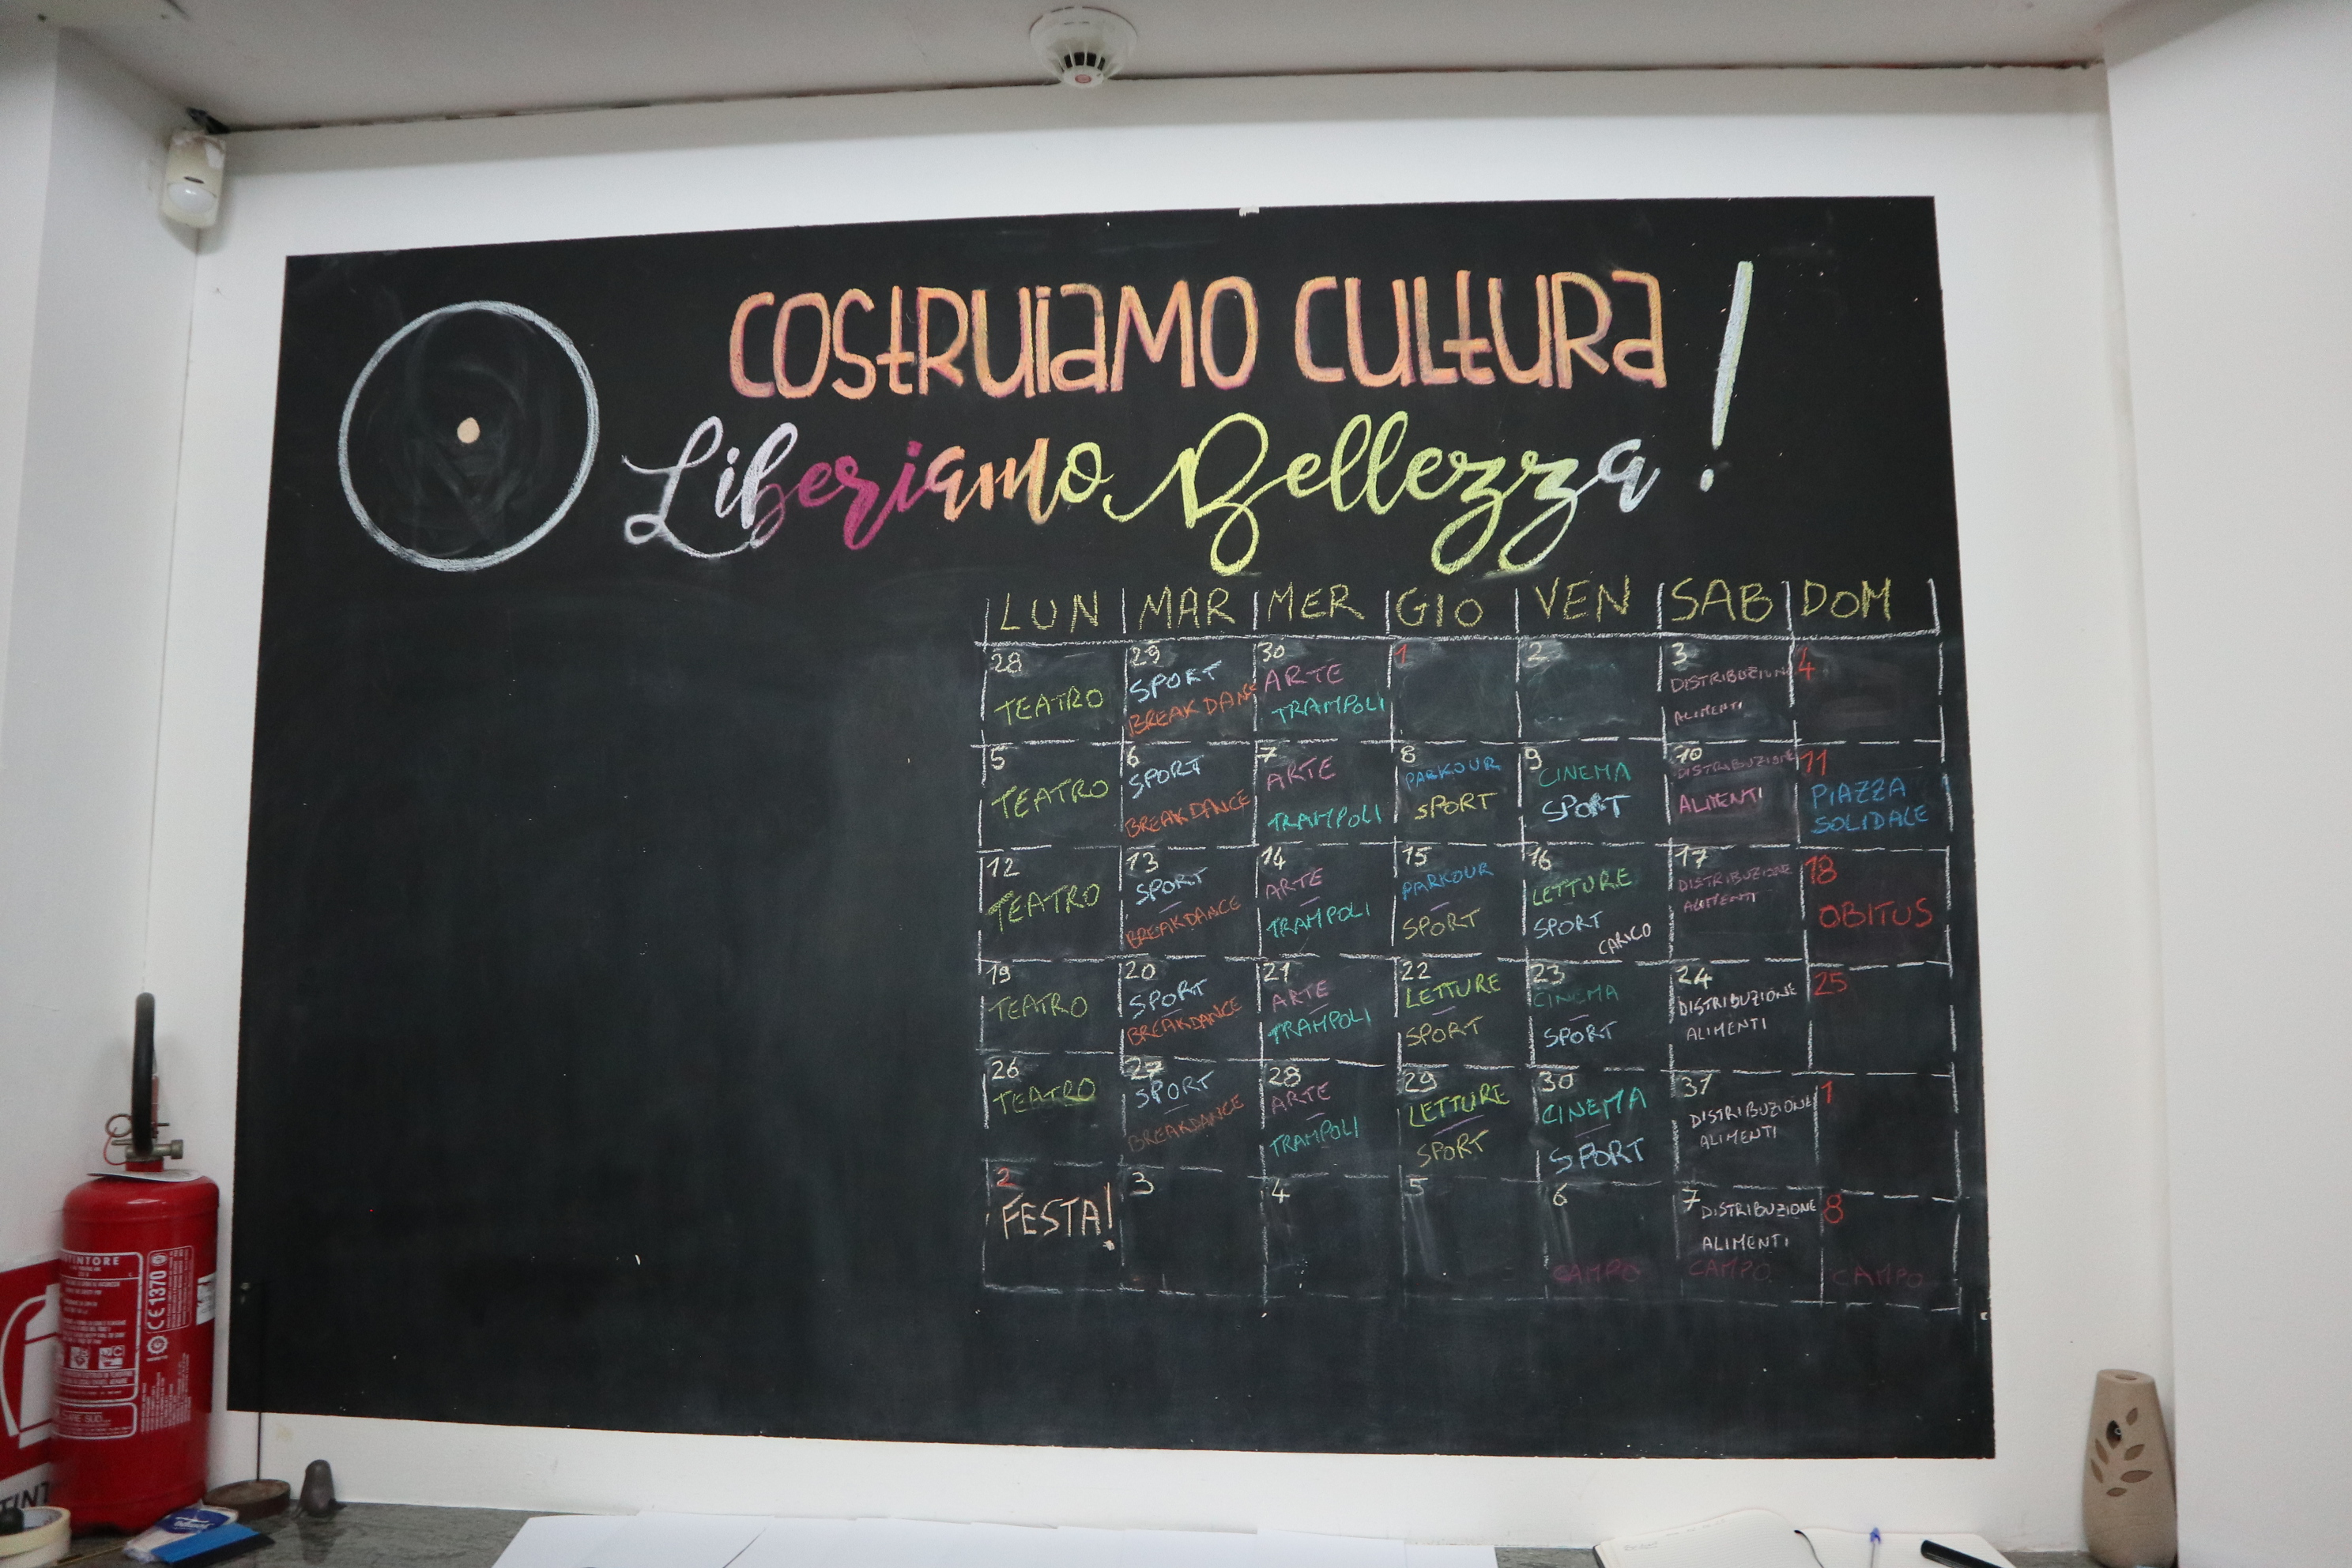 COSTRUIAMO CULTURA !
Liberiamo Bellezza
LUN MAR MER GIO VEN SAB DOM
28
TEATRO
29
SPORT
BREAK DANC
30
ARTE
TRAMPOLI
1
2
3
DISTRIBUZION
ALIMENTI
4
5
TEATRO
6
SPORT
BREAKDANCE
7
ARTE
TRAMPOLI
8
PARKOUR
SPORT
9
CINEMA
SPORT
10
DISTRIBUZIONE
ALIMENTI
11
PIAZZA
SOLIDALE
12
TEATRO
13
SPORT
BREAKDANCE
14
ARTE
TRAMPOLI
15
PARKOUR
SPORT
16
LETTURE
SPORT
CARICO
17
DISTRIBUZIONE
ALIMENTI
18
OBITUS
19
TEATRO
20
SPORT
BREAKDANCE
21
ARTE
TRAMPOLI
22
LETTURE
SPORT
23
CINEMA
SPORT
24
DISTRIBUZIONE
ALIMENTI
25
26
TEATRO
27
SPORT
BREAKDANCE
28
ARTE
TRAMPOLI
29
LETTURE
SPORT
30
CINEMA
SPORT
31
DISTRIBUZIONE
ALIMENTI
1
2
FESTA!
3
4
5
6
CAMPO
7
DISTRIBUZIONE
ALIMENTI
CAMPO
8
CAMPO
CE 1370